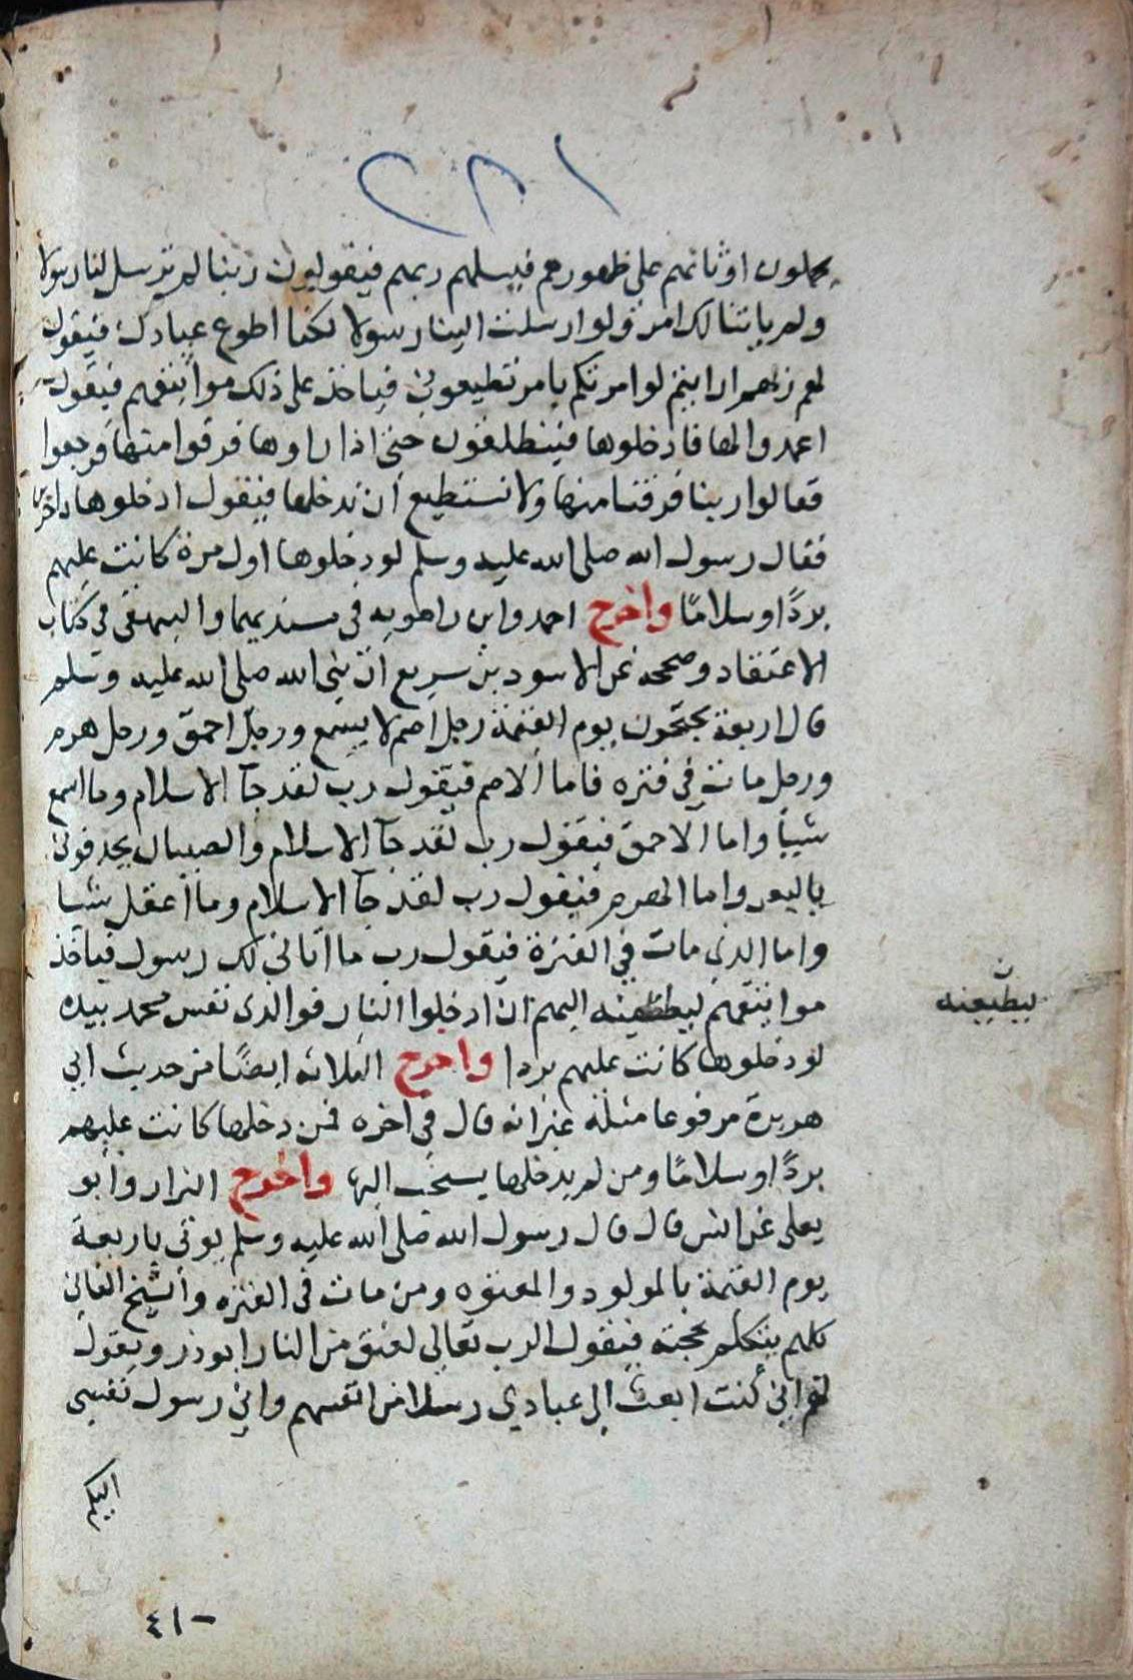 يحملون اوثانهم على ظهورهم فيسلهم ربهم فيقولون ربنا لم ترسل لنا رسولا
ولم ياتنا لك امر ولو ارسلت الينا رسولا لكنا اطوع عبادك فيقول
لهم ربهم ارايتم لو امرتكم بامر تطيعوني فياخذ على ذلك مواثيقهم فيقول
اعمدوا لها فادخلوها فينطلقون حتى اذا راوها فرقوا منها فرجعوا
فقالوا ربنا فرقنا منها ولا نستطيع ان ندخلها فيقول ادخلوها داخرين
فقال رسول الله صلى الله عليه وسلم لو دخلوها اول مرة كانت عليهم
بردًا وسلامًا واخرج احمد وابن راهويه في مسنديهما والبيهقي في كتاب
الاعتقاد وصححه عن الاسود بن سريع ان نبي الله صلى الله عليه وسلم
قال اربعة يحتجون يوم القيمة رجل اصم لا يسمع ورجل احمق ورجل هرم
ورجل مات في فتره فاما الاصم فيقول رب لقد جآ الاسلام وما اسمع
شييا واما الاحمق فيقول رب لقد جآ الاسلام والصبيان يحذفوني
بالبعر واما الهرم فيقول رب لقد جآ الاسلام وما اعقل شيا
واما الذي مات في الفترة فيقول رب ما اتاني لك رسول فياخذ
مواثيقهم ليطيعنه اليهم ان ادخلوا النار فوالذي نفس محمد بيده
ليطيعنه
ن
لو دخلوها كانت عليهم بردا واخرج الثلاثه ايضًا من حديث ابي
هريرة مرفوعا مثله غير انه قال في اخره فمن دخلها كانت عليهم
بردًا وسلامًا ومن لم يدخلها يسحب اليها واخرج البزار وابو
يعلى عن انس قال قال رسول الله صلى الله عليه وسلم يوتى باربعة
يوم القيمة بالمولود والمعتوه ومن مات في الفتره والشيخ الفاني
كلهم يتكلم بحجته فيقول الرب تعالى لعنق من النار ابرز ويقول
لهم اني كنت ابعث الى عبادي رسلا من انفسهم واني رسول نفسي
اليكم
٤١٠